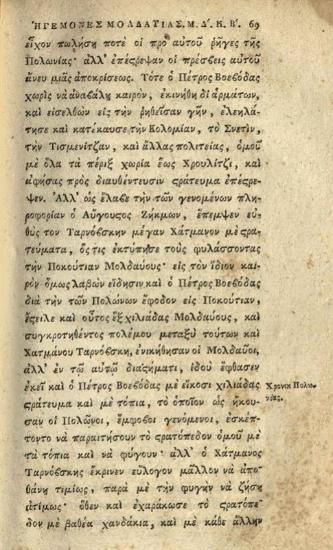 ΗΓΕΜΟΝΕΣ ΜΟΛΔΑΤΙΑΣ, Μ. Δ΄. Κ. Β΄. 69
εἶχον πωλήσῃ ποτὲ οἱ πρὸ αὐτοῦ ῥῆγες τῆς
Πολωνίας· ἀλλ' ἐπέςρεψαν οἱ πρέσβεις αὐτοῦ
ἄνευ μιᾶς ἀποκρίσεως. Τότε ὁ Πέτρος Βοεβόδας
χωρὶς νὰ ἀναβάλῃ καιρὸν, ἐκινήθη δι' ἁρμάτων,
καὶ εἰσελθὼν εἰς τὴν ῥηθεῖσαν γῆν, ἐλεηλά-
τησε καὶ κατέκαυσε τὴν Κολομίαν, τὸ Σνετὶν,
τὴν Τισμενίτζαν, καὶ ἄλλας πολιτείας, ὁμοῦ
μὲ ὅλα τὰ πέριξ χωρία ἕως Χρουλίτζι, καὶ
ἀφήσας πρὸς διαυθέντευσιν ςράτευμα ἐπέςρε-
ψεν. Ἀλλ' ὡς ἔλαβε τὴν τῶν γενομένων πλη-
ροφορίαν ὁ Αὔγουςος Ζήκμων, ἔπεμψεν εὐ-
θὺς τὸν Ταρνόβσκην μέγαν Χάτμανον μὲ ςρα-
τεύματα, ὅς τις ἐκτύπησε τοὺς φυλάσσοντας
τὴν Ποκούτιαν Μολδαύους· εἰς τὸν ἴδιον και-
ρὸν ὅμως λαβὼν εἴδησιν καὶ ὁ Πέτρος Βοεβόδας
διὰ τὴν τῶν Πολώνων ἔφοδον εἰς Ποκούτιαν,
ἔςειλε καὶ οὗτος ἓξ χιλιάδας Μολδαύους, καὶ
συγκροτηθέντος πολέμου μεταξὺ τούτων καὶ
Χατμάνου Ταρνόβσκη, ἐνικήθησαν οἱ Μολδαῦοι,
ἀλλ' ἐν τῷ αὐτῷ διαςήματι, ἰδοὺ ἔφθασεν
ἐκεῖ καὶ ὁ Πέτρος Βοεβόδας μὲ εἴκοσι χιλιάδας
ςράτευμα καὶ μὲ τόπια, τὸ ὁποῖον ὡς ἤκου-
σαν οἱ Πολῶνοι, ἔμφοβοι γενόμενοι, ἐσκέπ-
τοντο νὰ παραιτήσουν τὸ ςρατόπεδον ὁμοῦ μὲ
τὰ τόπια καὶ νὰ φύγουν· ἀλλ' ὁ Χάτμανος
Ταρνόβσκης ἔκρινεν εὔλογον μᾶλλον νὰ ἀπο-
θάνῃ τιμίως, παρὰ μὲ τὴν φυγὴν νὰ ζήσῃ
ἀτίμως· ὅθεν καὶ ἐχαράκωσε τὸ ςρατόπε-
δον μὲ βαθέα χανδάκια, καὶ μὲ κάθε ἄλλην
Χρονικ. Πολω-
νίας.